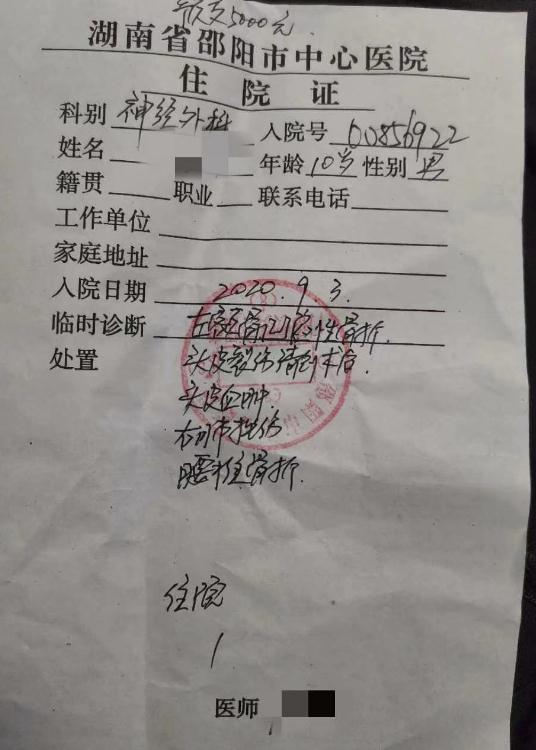 预交5000元
湖南省邵阳市中心医院
住院证
科别 神经外科 入院号 00856922
姓名 年龄 10岁 性别 男
籍贯 职业 联系电话
工作单位
家庭地址
入院日期 2020.9.3.
临时诊断 左额骨凹陷性骨折.
处置 头皮裂伤清创术后.
头皮血肿.
右肺挫伤
腰椎骨折.
住院
医师